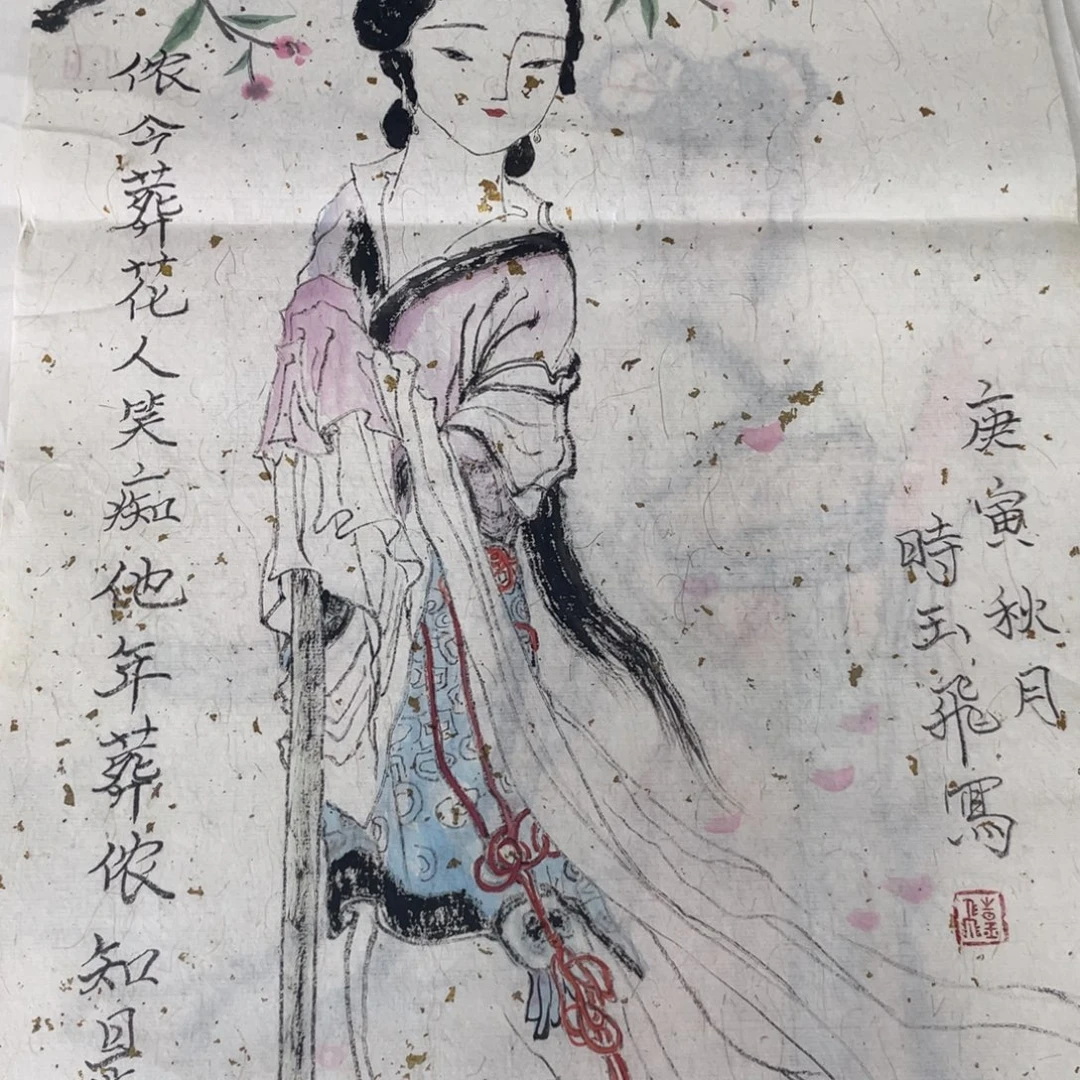 庚寅秋月
時玉飛寫
侬今葬花人笑痴他年葬侬知是